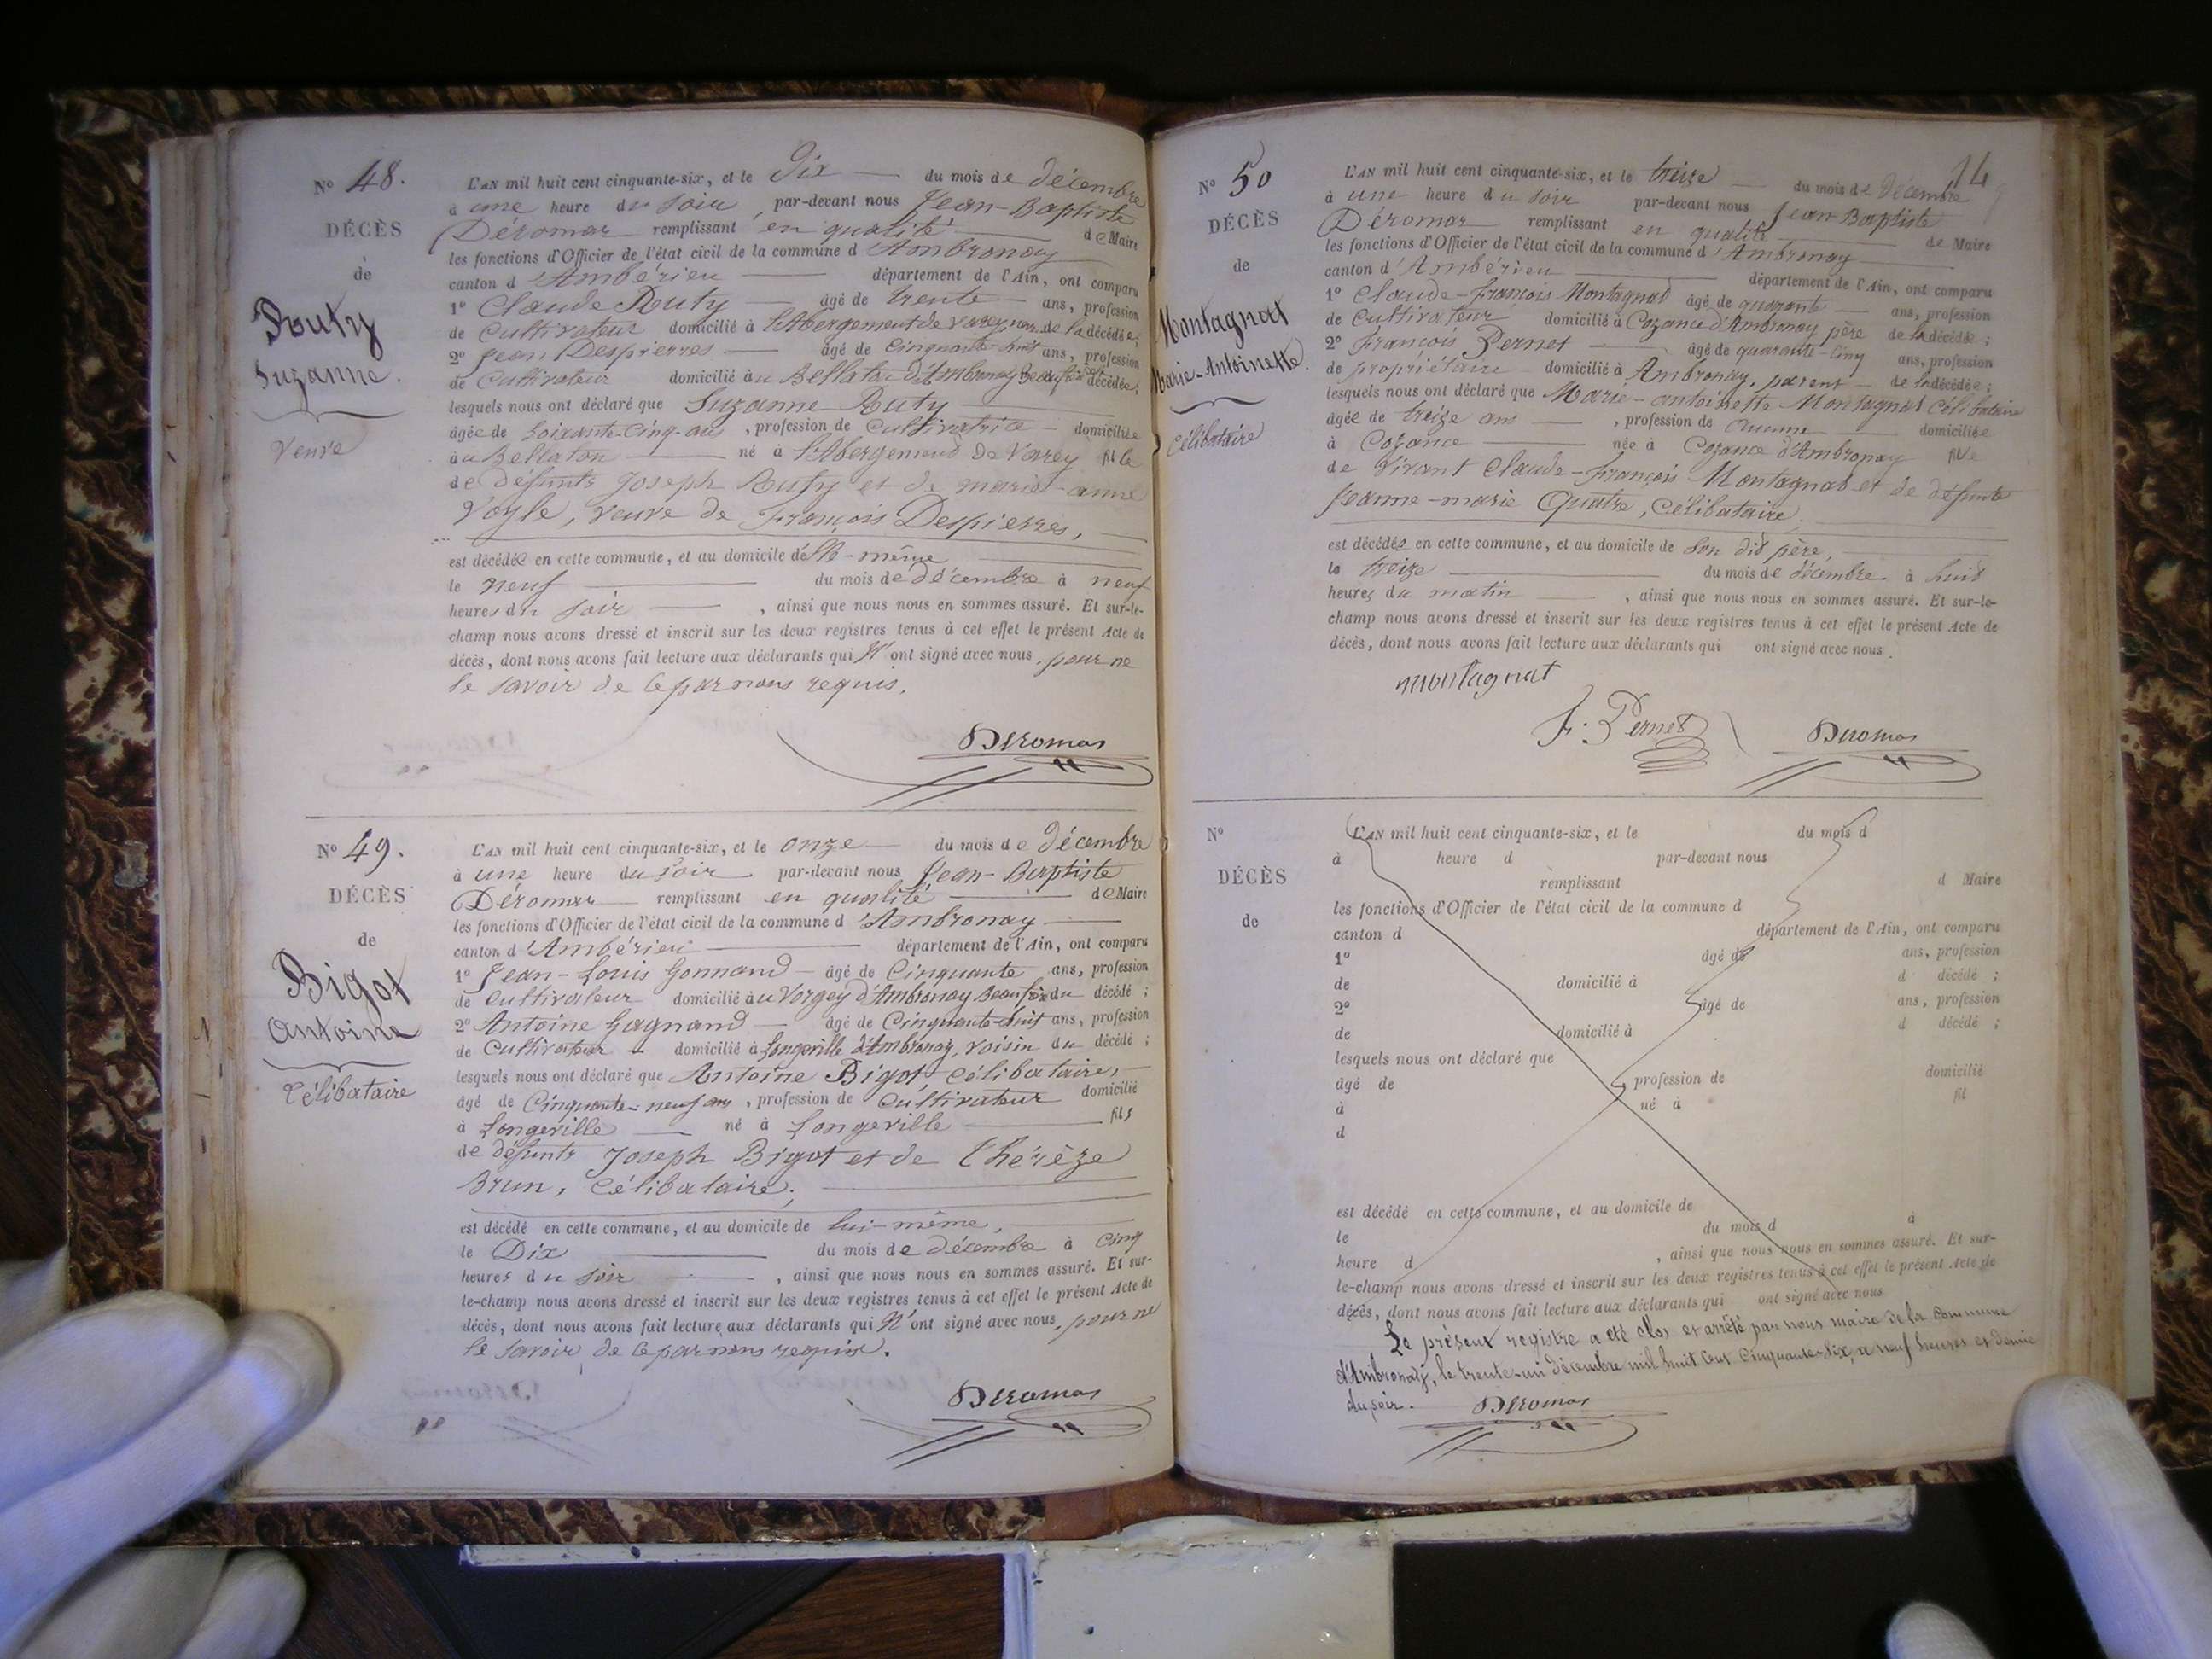 No 48.
DÉCÈS
de
Routy
Suzanne.
Veuve
L'AN mil huit cent cinquante-six, et le Dix du mois de décembre
à une heure du soir, par-devant nous Jean-Baptiste
Déromas remplissant en qualité de Maire
les fonctions d'Officier de l'état civil de la commune d'Ambronay
canton d'Ambérieu département de l'Ain, ont comparu
1o Claude Ruty âgé de trente ans, profession
de cultivateur domicilié à l'Abergement de Varey de la décédée;
2o Jean Despierres âgé de cinquante-huit ans, profession
de cultivateur domicilié au Bellaton d'Ambronay Beaufrère décédée;
lesquels nous ont déclaré que Suzanne Ruty
âgée de soixante-cinq-ans, profession de cultivatrice domiciliée
au Bellaton né à l'Abergement de Varey fille
de défunts Joseph Ruty et de marie-anne
Voyle, veuve de François Despierres,
est décédée en cette commune, et au domicile d'elle-même
le neuf du mois de décembre à neuf
heures du soir, ainsi que nous nous en sommes assuré. Et sur-le-
champ nous avons dressé et inscrit sur les deux registres tenus à cet effet le présent Acte de
décès, dont nous avons fait lecture aux déclarants qui N'ont signé avec nous, pour ne
le savoir de ce par nous requis.
Deromas
No 49.
DÉCÈS
de
Bigot
Antoine
Célibataire
L'AN mil huit cent cinquante-six, et le onze du mois de Décembre
à une heure du soir par-devant nous Jean-Baptiste
Déromas remplissant en qualité de Maire
les fonctions d'Officier de l'état civil de la commune d'Ambronay
canton d'Ambérieu département de l'Ain, ont comparu
1o Jean-Louis Gonnand âgé de Cinquante ans, profession
de cultivateur domicilié au Vorgey d'Ambronay Beaufrère du décédé;
2o Antoine Gagnand âgé de Cinquante-huit ans, profession
de cultivateur domicilié à Longeville d'Ambronay, voisin du décédé;
lesquels nous ont déclaré que Antoine Bigot, célibataire,
âgé de Cinquante-neuf ans, profession de cultivateur domicilié
à Longeville né à Longeville fils
de défunts Joseph Bigot et de Thérèze
Brun, célibataire;
est décédé en cette commune, et au domicile de lui-même,
le Dix du mois de décembre à cinq
heures du soir, ainsi que nous nous en sommes assuré. Et sur-
le-champ nous avons dressé et inscrit sur les deux registres tenus à cet effet le présent Acte de
décès, dont nous avons fait lecture aux déclarants qui N'ont signé avec nous, pour ne
le savoir, de ce par nous requis.
Deromas
14
No 50
DÉCÈS
de
Montagnat
Marie-Antoinette.
Célibataire
L'AN mil huit cent cinquante-six, et le treize du mois de décembre
à une heure du soir par-devant nous Jean-Baptiste
Déromas remplissant en qualité de Maire
les fonctions d'Officier de l'état civil de la commune d'Ambronay
canton d'Ambérieu département de l'Ain, ont comparu
1o Claude-François Montagnat âgé de quarante ans, profession
de cultivateur domicilié à Cozance d'Ambronay père de la décédée;
2o François Pernet âgé de quarante-cinq ans, profession
de propriétaire domicilié à Ambronay, parent de la décédée;
lesquels nous ont déclaré que Marie-antoinette Montagnat célibataire
âgée de treize ans, profession de Aucune domiciliée
à Cozance née à Cozance d'Ambronay fille
de vivant Claude-François Montagnat et de défunte
Jeanne-marie Quatre, célibataire,
est décédée en cette commune, et au domicile de son dit père,
le treize du mois de décembre à huit
heures du matin, ainsi que nous nous en sommes assuré. Et sur-le-
champ nous avons dressé et inscrit sur les deux registres tenus à cet effet le présent Acte de
décès, dont nous avons fait lecture aux déclarants qui ont signé avec nous.
montagnat
F. Pernet
Deromas
No
DÉCÈS
de
L'AN mil huit cent cinquante-six, et le du mois d
à heure d par-devant nous
remplissant d Maire
les fonctions d'Officier de l'état civil de la commune d
canton d département de l'Ain, ont comparu
1o âgé de ans, profession
de domicilié à d décédé;
2o âgé de ans, profession
de domicilié à d décédé;
lesquels nous ont déclaré que
âgé de profession de domicilié
à né à fil
d
est décédé en cette commune, et au domicile de
le du mois d à
heure d, ainsi que nous nous en sommes assuré. Et sur-
le-champ nous avons dressé et inscrit sur les deux registres tenus à cet effet le présent Acte de
décès, dont nous avons fait lecture aux déclarants qui ont signé avec nous
Le présent registre a été clos et arrêté par nous maire de la commune
d'Ambronay, le trente-un décembre mil huit cent cinquante-six, a neuf heures et demie
du soir.
Deromas